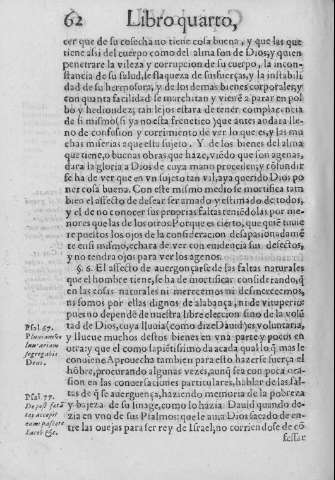 62 Libro quarto,
cer que de su cosecha no tiene cosa buena, y que las que
tiene assi del cuerpo como del alma son de Dios, y quien
penetrare la vileza y corrupcion de su cuerpo, la incon-
stancia de su salud, la flaqueza de sus fuerças, y la instabili
dad de su hermosura, y de los demas bienes corporales, y
con quanta facilidad se marchitan y viene a parar en pol
bo y hediondez; tan lejos estara de tener complacencia
de si mismo (si ya no esta frenetico) que antes andara lle-
no de confusion y corrimiento de ver lo que es, y las mu
chas miserias a que esta sujeto. Y de los bienes del alma
que tiene, o buenas obras que haze, viēdo que son agenas,
dara la gloria a Dios de cuya mano proceden; y cōfundir
se ha de ver que en un sujeto tan vil, aya querido Dios po
ner cosa buena. Con este mismo medio se mortifica tam
bien el affecto de desear ser amado y estimado de todos,
y el de no conocer sus proprias faltas teniēdolas por me-
nores que las de los otros: Porque es cierto, que quiē tuvie
re puestos los ojos de la consideracion desapasionadamē
te en si mismo, echara de ver con euidencia sus defectos,
y no tendra ojos para ver los agenos.
§. 6. El affecto de auergonçarse de las faltas naturales
que el hombre tiene, se ha de mortificar considerando, q̄
en las cosas naturales ni merecemos ni desmerecemos,
ni somos por ellas dignos de alabança, ni de vituperio:
pues no depende de nuestra libre eleccion sino de la volū
tad de Dios, cuya lluvia (como dize Dauid) es voluntaria,
y llueue muchos destos bienes en vna parte y pocos en
otra; y que el como sapientissimo da acada qual lo q̄ mas le
conuiene. Aprouecha tambien para esto hazerse fuerça el
hōbre, procurando algunas vezes, aunq̄ sea con poca oca
sion en las conuersaciones particulares, hablar de las fal-
tas de q̄ se auerguença, haziendo memoria de la pobreza
y bajeza de su linage, como lo hazia Dauid quando de-
zia en vno de sus Psalmos: que le auia Dios sacado de en-
tre las ouejas para ser rey de Israel, no corriendose de cō
fessar
Psal. 67.
Pluuiam vo
luntariam
segregabis
Deus.
Psal. 77.
De post fœtā
tes accepit
eum: pascere
Iacob &c.